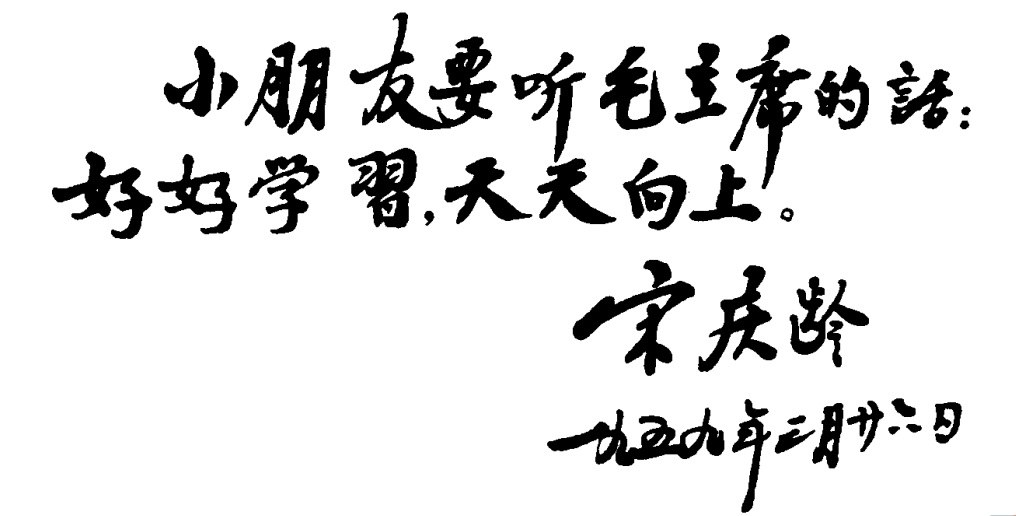 小朋友要听毛主席的話：
好好学習，天天向上。
宋庆龄
一九五九年三月廿六日